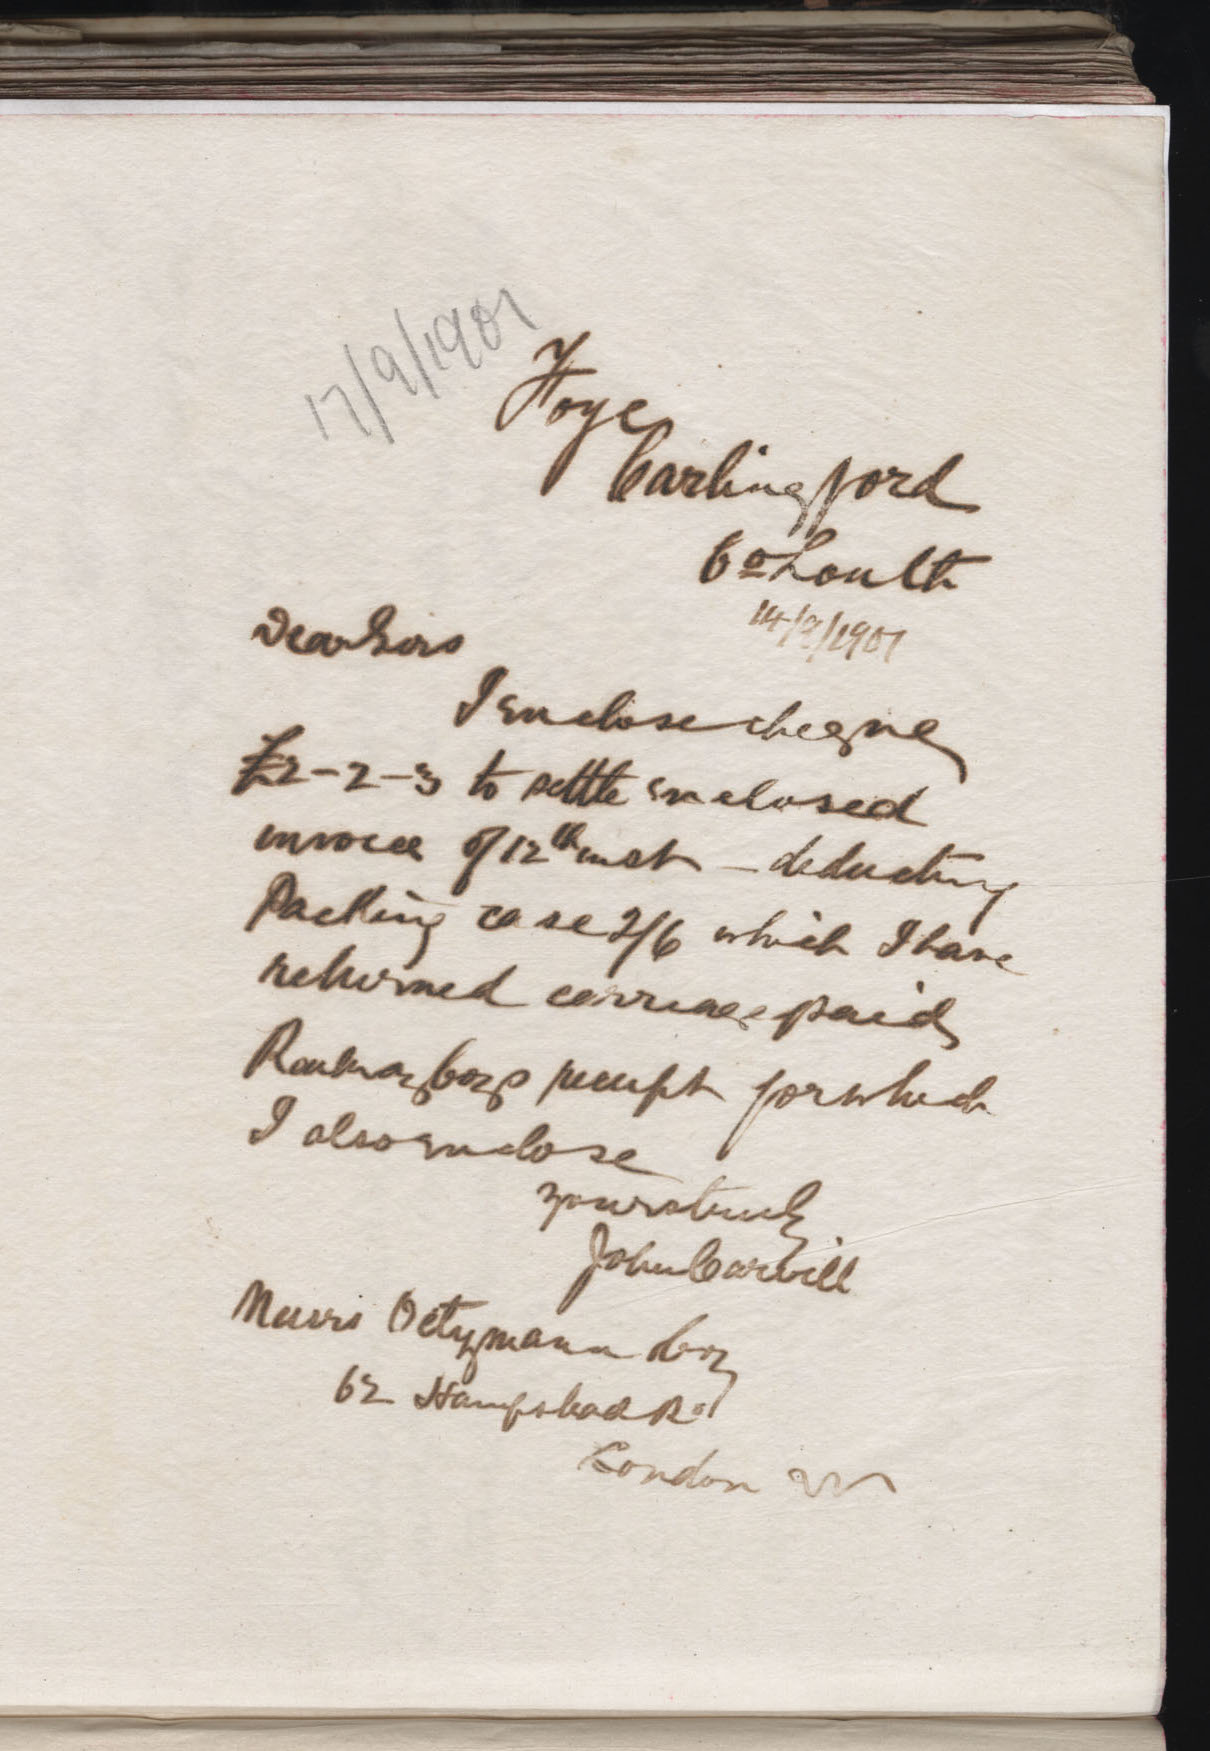 17/9/1901
Foye
Carlingford
Co Louth
14/9/1901
Dear Sirs
I enclose cheque
£2-2-3 to settle enclosed
invoice of 12th inst - deducting
Packing case 2/6 which I have
returned carriage paid
Railway Coys receipt for which
I also enclose
Yours truly
John Carvill
Messrs Oetzmann & Co
62 Hampstead Rd
London W